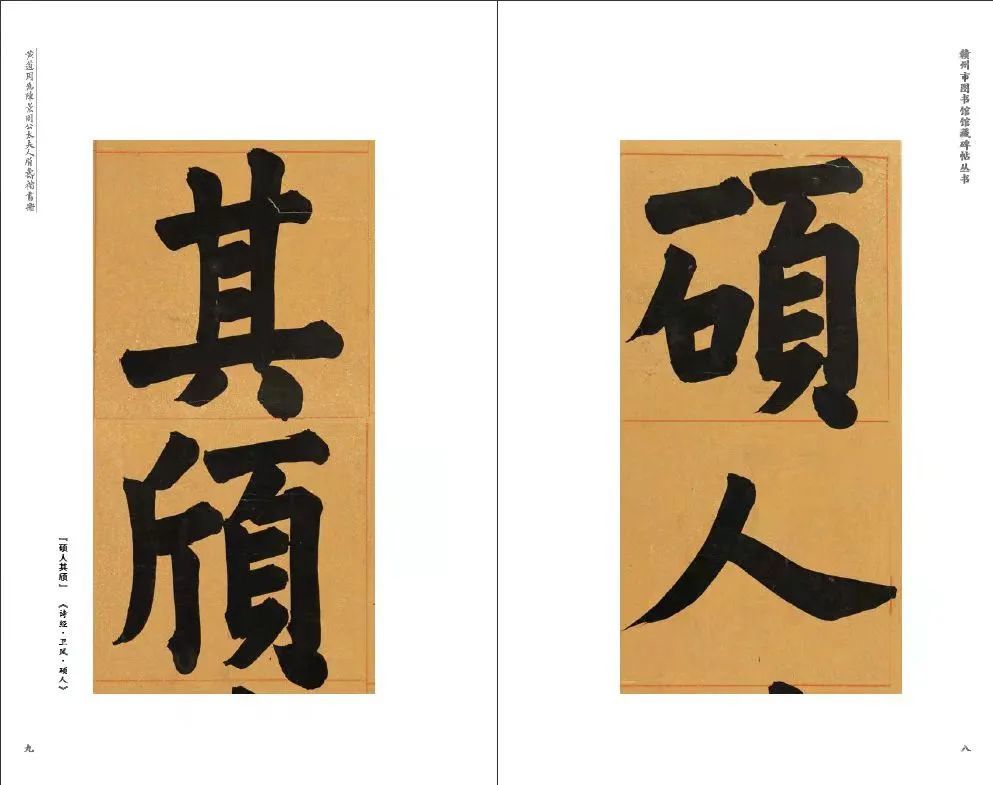 赣州市图书馆馆藏碑帖丛书
碩
人
八
其
頎
「硕人其颀」 《诗经·卫风·硕人》
黄道周為陳景則公太夫人眉壽楷書
九